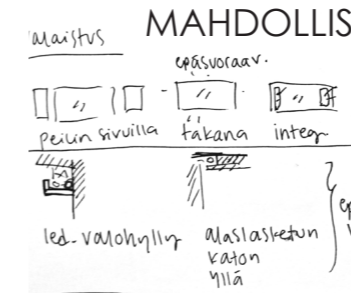 MAHDOLLIS
alaistus
epäsuoraav.
peilin sivuilla takana integr
led-valohylly alaslasketun
katon
yllä